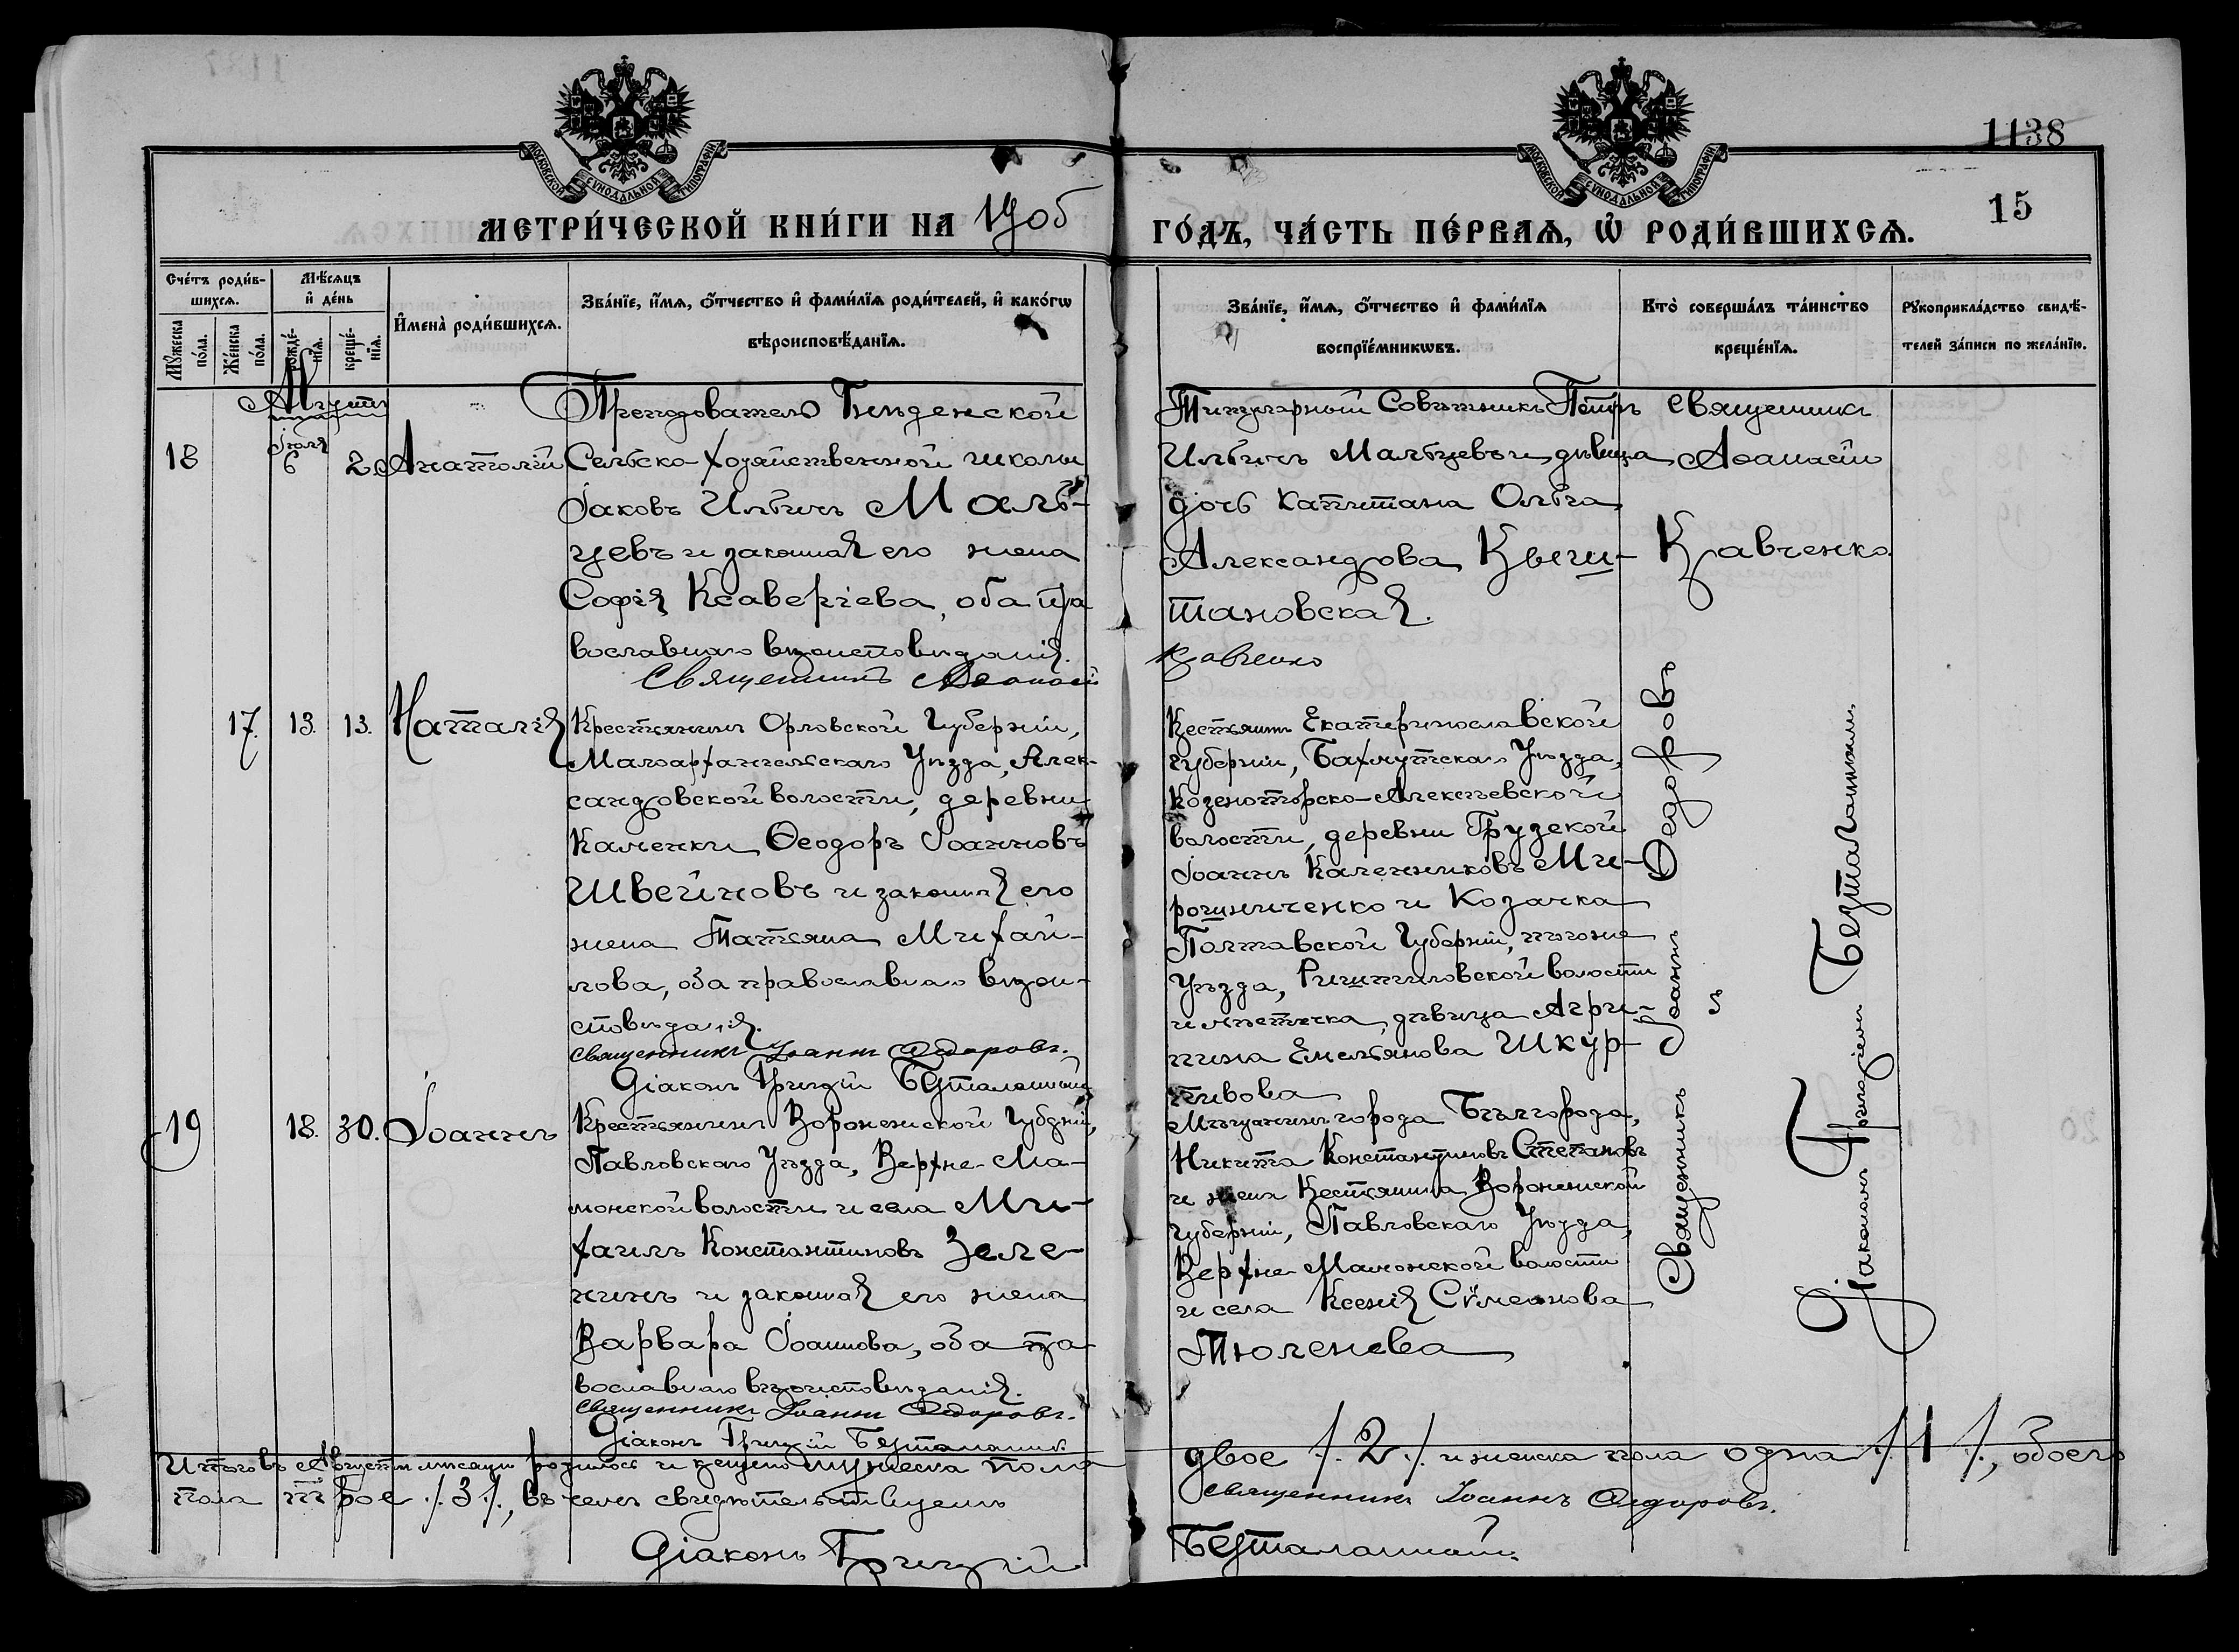 1138
15
МОСКОВСКОЙ СѴНОДАЛЬНОЙ ТИПОГРАФІИ
МОСКОВСКОЙ СѴНОДАЛЬНОЙ ТИПОГРАФІИ
МЕТРИ́ЧЕСКОЙ КНИ́ГИ НА 1905
ГО́ДЪ, ЧА́СТЬ ПЕ́РВАѦ, Ѡ҆ РОДИ́ВШИХСѦ.
Сче́тъ роди́в-
шихсѧ.
Мꙋ́жеска по́ла.
Же́нска по́ла.
Мѣ́сѧцъ
и҆ де́нь
рожде́-нїѧ.
креще́-нїѧ.
И҆мена̀ роди́вшихсѧ.
Зва́нїе, и҆́мѧ, ѻ҆́тчество и҆ фами́лїѧ роди́телей, и҆ како́гѡ
вѣроисповѣ́данїѧ.
Зва́нїе, и҆́мѧ, ѻ҆́тчество и҆ фами́лїѧ
воспрїе́мникѡвъ.
Кто̀ соверша́лъ та́инство
креще́нїѧ.
Рꙋкоприкла́дство свидѣ́-
телей за́писи по жела́нїю.
Августъ
18
Іюля
6
2
Анатолій
Преподователь
Сельско-Хозяйственной школы
Іаковъ Ильичъ Маль-
цевъ и законная его жена
Софія Ксаверіева, оба пра
вославнаго вѣроисповѣданія.
Священникъ Аѳанасій
Титулярный Совѣтникъ Петръ
Ильичъ Мальцевъ и дѣвица
дочь Капитана Ольга
Александрова Кыш-
тановская.
Кравченко
Священникъ
Аѳанасій
Кравченко
17.
13.
13.
Наталія
Крестьянинъ Орловской Губерніи,
Малоархангельскаго Уѣзда, Алек-
сандровской волости, деревни
Каменки Ѳеодоръ Іоанновъ
Швейновъ и законная его
жена Татьяна Михай-
лова, оба православнаго вѣрои-
сповѣданія.
Священникъ Іоаннъ Ѳедоровъ.
Діаконъ Григорій Безталанный
Крестьянинъ Екатеринославской
губерніи, Бахмутскаго Уѣзда,
-Алексѣевской
волости, деревни Грузской
Іоаннъ Каленниковъ Ми-
рошниченко и Козачка
Полтавской Губерніи, того же
Уѣзда, волости
и мѣстечка, дѣвица Агри-
пина Емельянова Шкур-
пивова
Священникъ Іоаннъ Ѳедоровъ
Діаконъ Григорій Безталанный
19
18.
30.
Іоаннъ
Крестьянинъ Воронежской Губерніи,
Павловскаго Уѣзда, Верхне-Ма-
монской волости и села Ми-
хаилъ Константиновъ Зеле-
нинъ и законная его жена
Варвара Іоаннова, оба пра-
вославнаго вѣроисповѣданія.
Священникъ Іоаннъ Ѳедоровъ.
Діаконъ Григорій Безталанный
Мѣщанинъ города Бѣлгорода,
Никита Константиновъ Степановъ
и жена Крестьянина Воронежской
губерніи, Павловскаго Уѣзда,
Верхне Мамонской волости
и села Ксенія Сѵмеонова
Тюленева
Итого въ Августѣ мѣсяцѣ родилось и крещено мужеска пола
двое /.2./ и женска пола одна /.1./, обоего
пола трое /.3./, въ чемъ свидѣтельствуемъ
Священникъ Іоаннъ Ѳедоровъ.
Діаконъ Григорій
Безталанный.